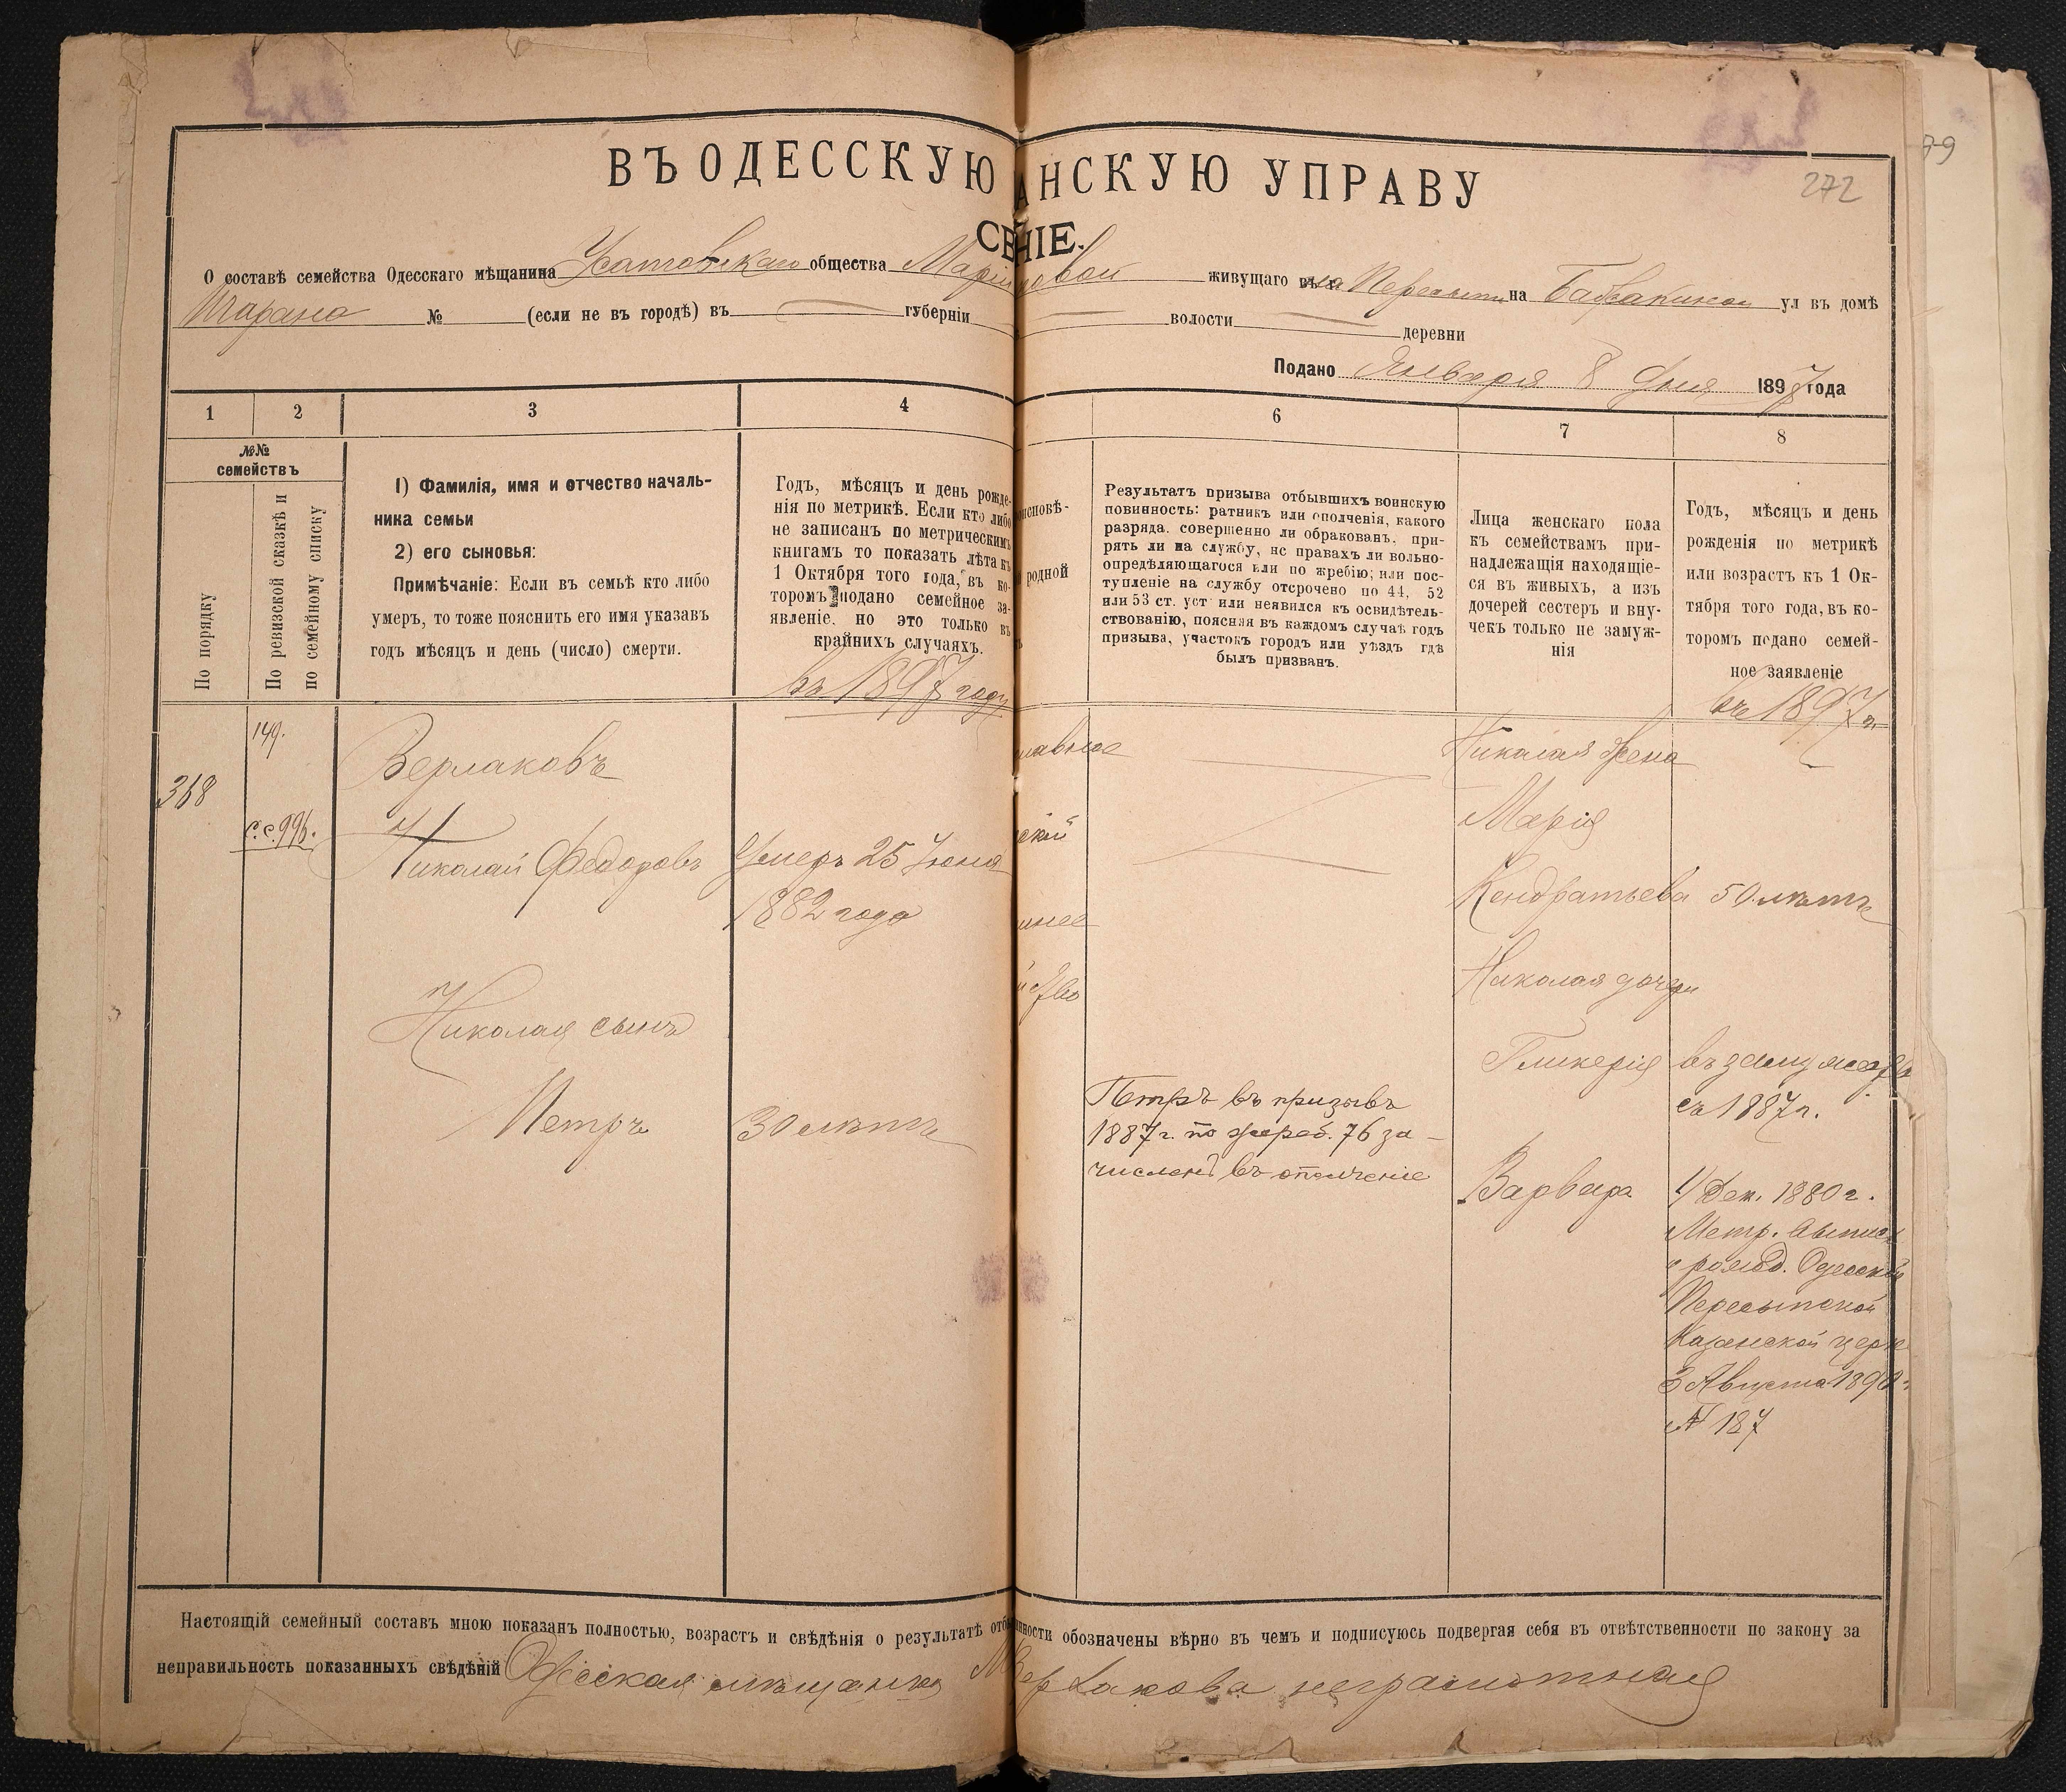 79
272
ВЪ ОДЕССКУЮ АНСКУЮ УПРАВУ
СЕНІЕ.
О составѣ семейства Одесскаго мѣщанина Усатовскаго общества Марі овой живущаго въ г. на Пересыпи на ул въ домѣ
№ (если не въ городѣ) въ губерніи волости деревни
Подано Января 8 дня 1897 года
1 2 3 4 6 7 8
№№ семействъ
По порядку
По ревизской сказкѣ и
по семейному списку
1) Фамилія, имя и отчество началь-
ника семьи
2) его сыновья:
Примѣчаніе: Если въ семьѣ кто либо
умеръ, то тоже пояснить его имя указавъ
годъ мѣсяцъ и день (число) смерти.
Годъ, мѣсяцъ и день рожде-
нія по метрикѣ. Если кто либо
не записанъ по метрическимъ
книгамъ то показать лѣта къ
1 Октября того года, въ ко-
торомъ подано семейное за-
явленіе, но это только въ
крайнихъ случаяхъ.
въ 1897 году
исповѣ-
родной
Результатъ призыва отбывшихъ воинскую
повинность: ратникъ или ополченія, какого
разряда, совершенно ли обракованъ, при-
рятъ ли на службу, нс правахъ ли вольно-
опредѣляющагося или по жребію; или пос-
тупленіе на службу отсрочено по 44, 52
или 53 ст. уст или неявился къ освидѣтель-
ствованію, поясняя въ каждомъ случаѣ годъ
призыва, участокъ городъ или уѣздъ гдѣ
былъ призванъ.
Лица женскаго пола
къ семействамъ при-
надлежащія находящіе-
ся въ живыхъ, а изъ
дочерей сестеръ и вну-
чекъ только не замуж-
нія
Годъ, мѣсяцъ и день
рожденія по метрикѣ
или возрастъ къ 1 Ок-
тября того года, въ ко-
торомъ подано семей-
ное заявленіе
въ 1897 г.
149.
368
с.с. 996.
Верлаковъ
Николай Федоровъ
Умеръ 25 Іюня
1882 года
Николая сынъ
Петръ
30 лѣтъ
славное
ской
Петръ въ призывъ
1887 г. по жреб. 76 за-
численъ въ ополченіе
Николая жена
Марія
Кендратьева 50 лѣтъ
Николая дочери
Гликерія въ замужествѣ
съ 1887 г.
Варвара 4 Дек. 1880 г.
Метр. выпись
о рожд. Одесской
Пересыпской
Казанской церк
3 Августа
№ 187
Настоящій семейный составъ мною показанъ полностью, возрастъ и свѣдѣнія о результатѣ отбы нности обозначены вѣрно въ чемъ и подписуюсь подвергая себя въ отвѣтственности по закону за
неправильность показанныхъ свѣдѣній Одесская мѣщанка М Верлакова неграмотная